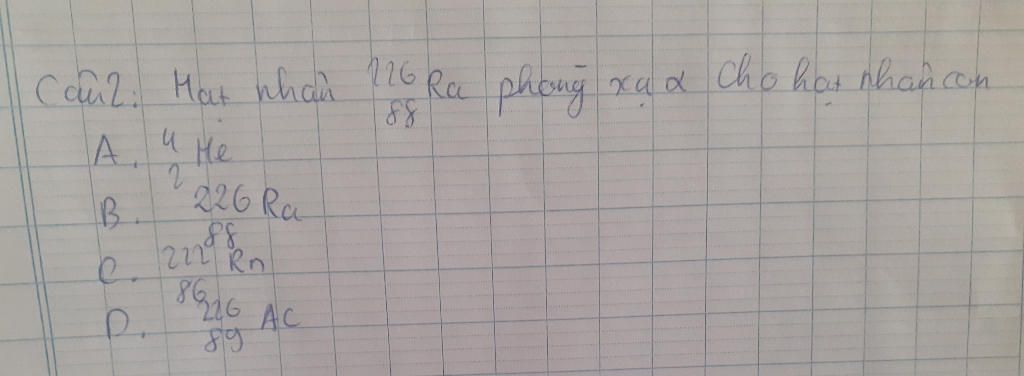 Câu2: Hạt nhân ²²⁶₈₈Ra phóng xạ α cho hạt nhân con
A. ⁴₂He
B. ²²⁶₈₈Ra
C. ²²²₈₆Rn
D. ²²⁶₈₉Ac